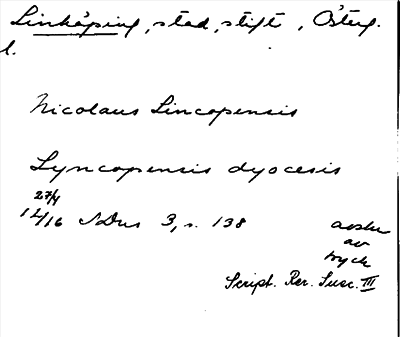 Linköping, stad, stift, Österg.
l.
Nicolaus Lincopensis
Lyncopensis dyocesis
27/4
1416 SDns 3, s. 138
avskr
av
tryck
Script. Rer. Suec. III